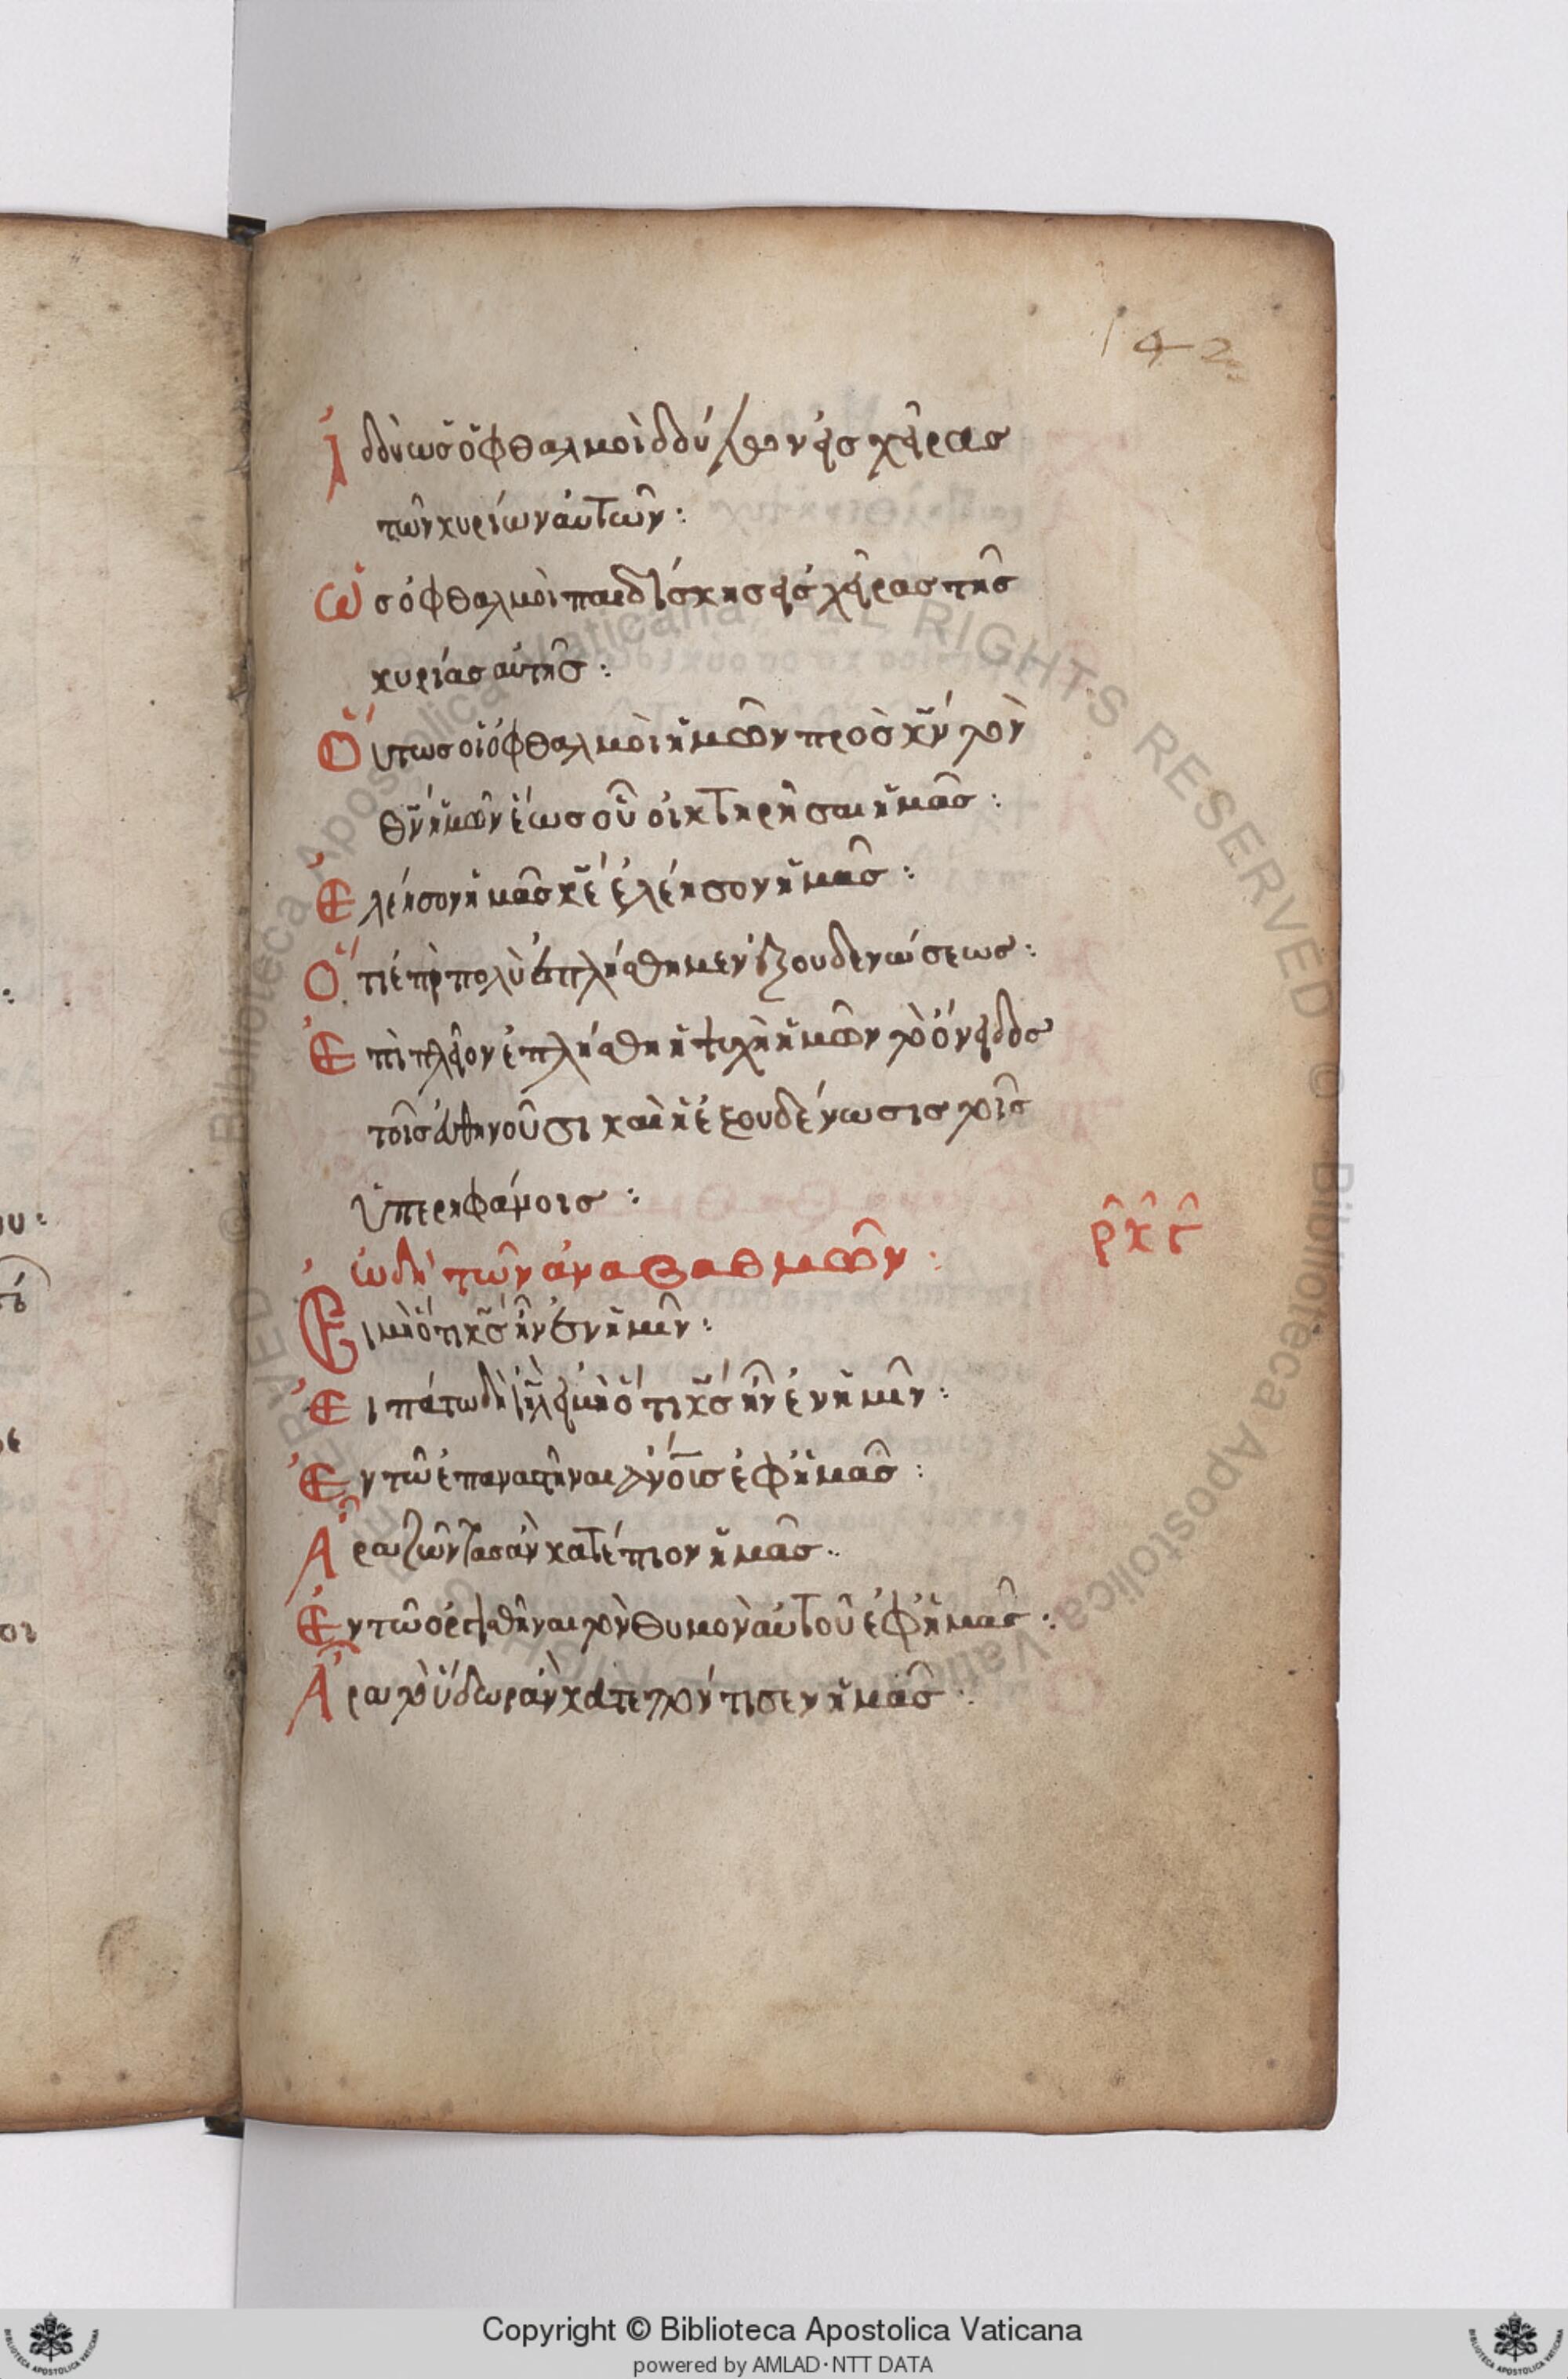 142
Ἰδοὺ ὡς ὀφθαλμοὶ δούλων εἰς χεῖρας
τῶν κυρίων αὐτῶν:
Ὡς ὀφθαλμοὶ παιδίσκης εἰς χεῖρας τῆς
κυρίας αὐτῆς:
Οὕτως οἱ ὀφθαλμοὶ ἡμῶν πρὸς κν τὸν
θν ἡμῶν ἕως οὗ οἰκτηρῆσαι ἡμᾶς:
Ἐλέησον ἡμᾶς κε ἐλέησον ἡμᾶς:
Ὅτι ἐπὶ πολὺ ἐπλήσθημεν ἐξουδενώσεως:
Ἐπὶ πλεῖον ἐπλήσθη ἡ ψυχὴ ἡμῶν τὸ ὄνειδος
τοῖς εὐθηνοῦσι καὶ ἡ ἐξουδένωσις τοῖς
ὑπερηφάνοις:
ὠδὴ τῶν ἀναβαθμῶν:
ρκγ
Εἰ μὴ ὅτι κς ἦν ἐν ἡμῖν:
Εἰπάτω δὴ ιηλ εἰ μὴ ὅτι κς ἦν ἐν ἡμῖν:
Ἐν τῶ ἐπαναστῆναι ανοις ἐφ ἡμᾶς:
Ἆρα ζῶντας ἂν κατέπιον ἡμᾶς:
Ἐν τῶ ὀργισθῆναι τὸν θυμὸν αὐτοῦ ἐφ ἡμᾶς:
Ἆρα τὸ ὕδωρ ἂν κατεπόντισεν ἡμᾶς:
Copyright © Biblioteca Apostolica Vaticana
powered by AMLAD・NTT DATA